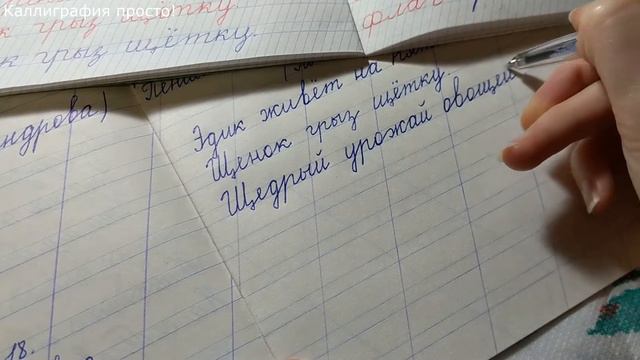 Каллиграфия просто!
к грыз щётку.
к грыз щётку.
ндрова)
Эдик живёт на
Щенок грыз щётку.
Щедрый урожай овощей
18.